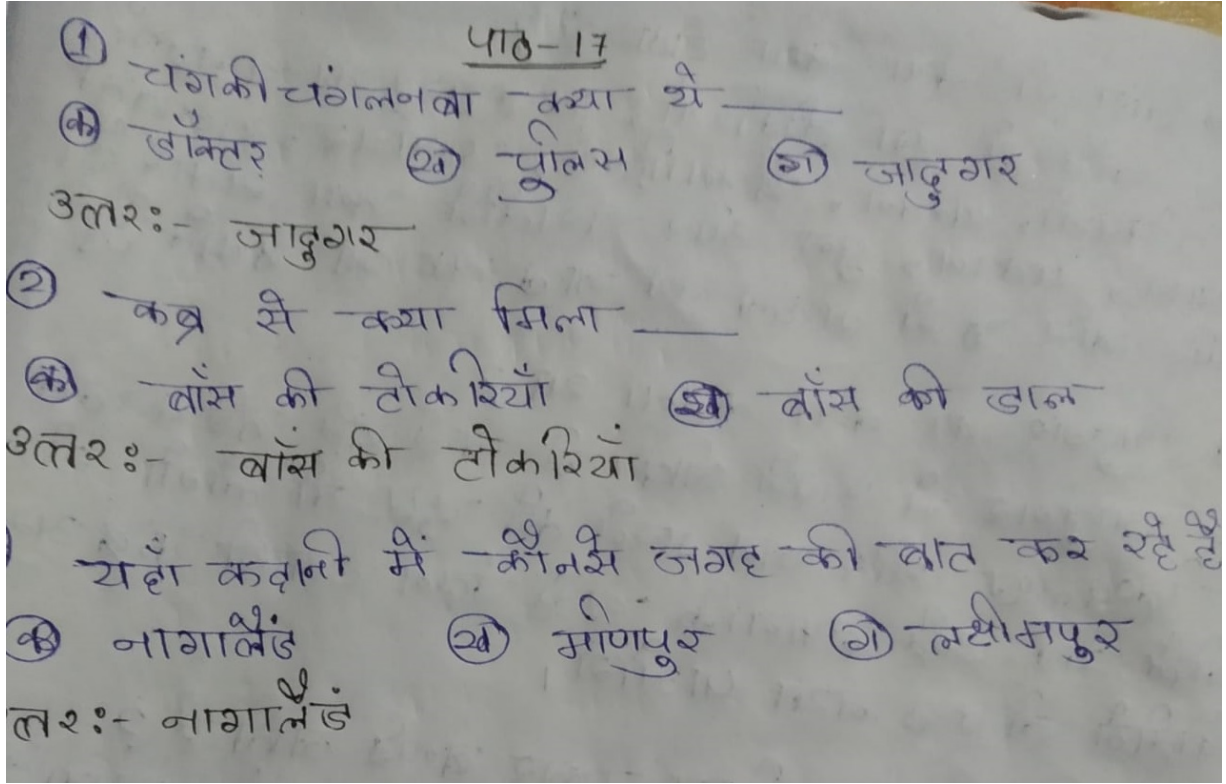 पाठ-17
① चंगकी चंगलनबा क्या थे ____
क डॉक्टर ख पुलिस ग जादुगर
उतर:- जादुगर
② कब्र से क्या मिला ____
क बाँस की टोकरियाँ ख बाँस की डाल
उतर:- बाँस की टोकरियाँ
यहाँ कहानी में कौनसे जगह की बात कर रहे है
क नागालैंड ख मणिपुर ग लक्षीमपुर
तर:- नागालैंड